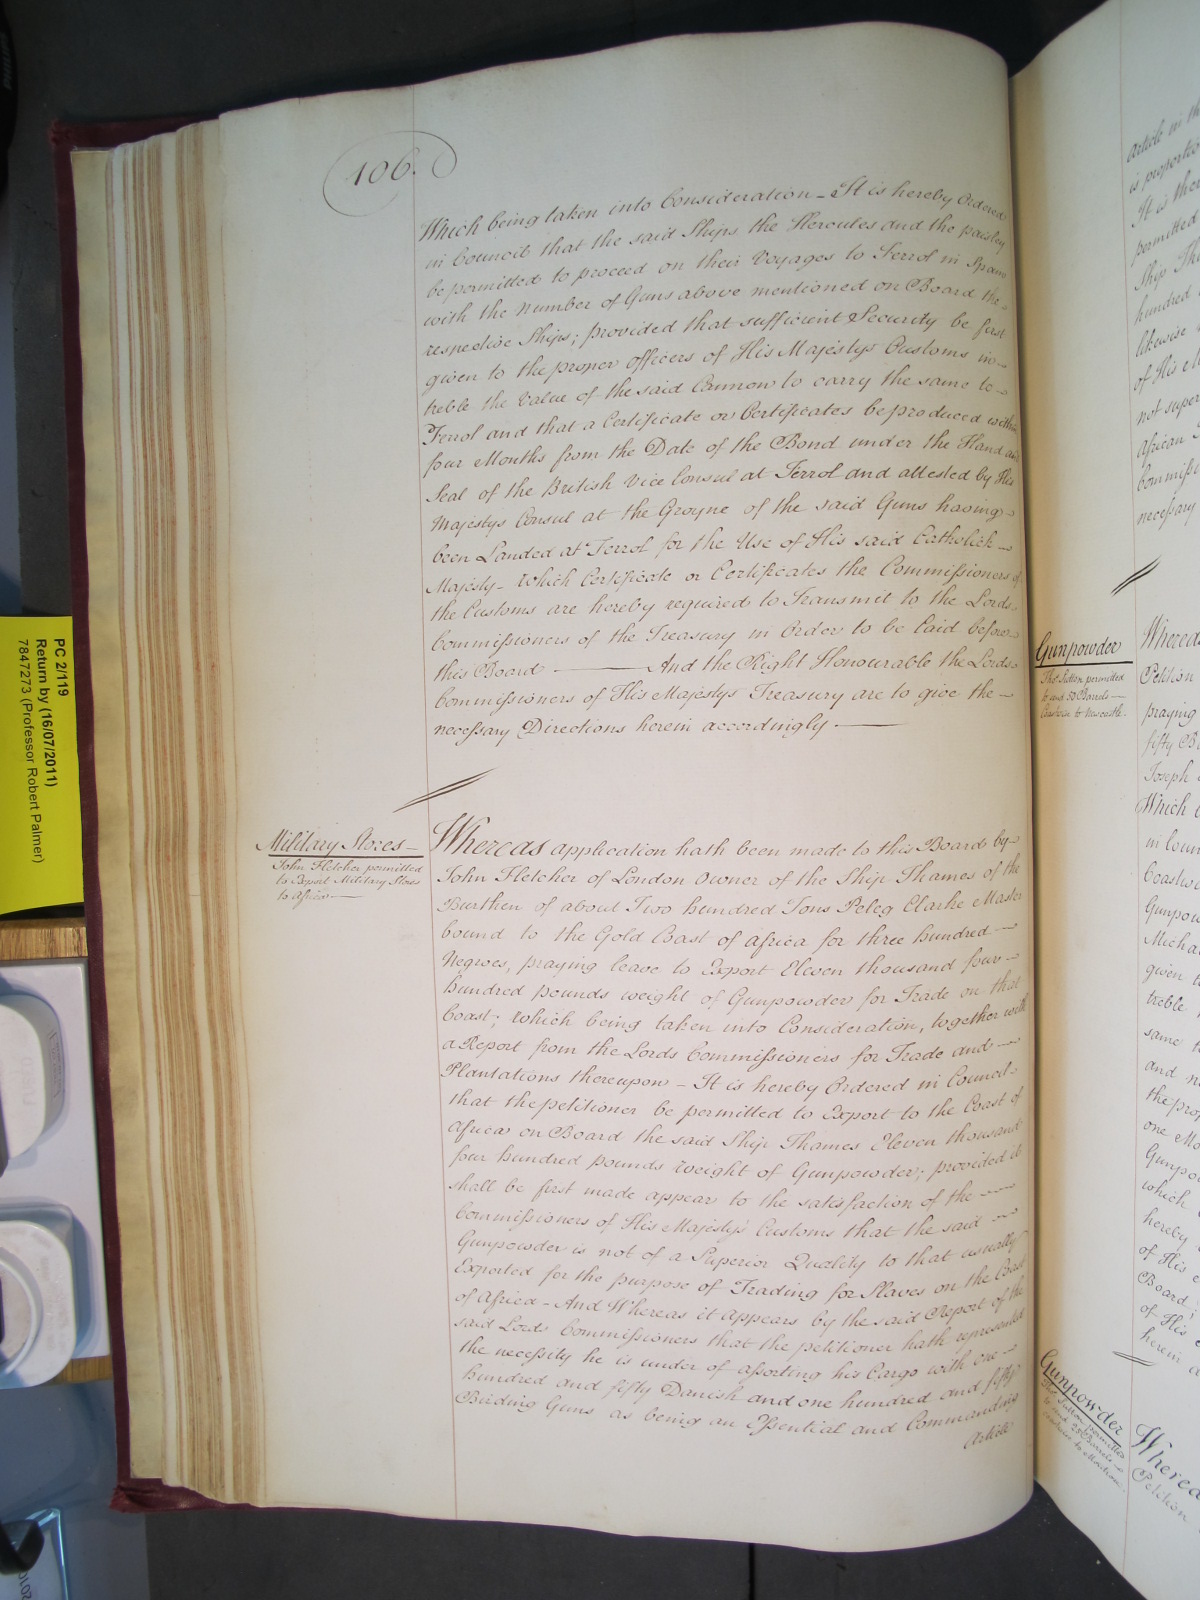 106.
Which being taken into Consideration – It is hereby Ordered
in Council that the said Ships the Hercules and the paisley
be permitted to proceed on their Voyages to Ferrol in Spain
with the Number of Guns above mentioned on Board the
respective Ships; provided that sufficient Security be first
given to the proper Officers of His Majestys Customs in
treble the Value of the said Cannon to carry the same to
Ferrol and that a Certificate or Certificates be produced within
four Months from the Date of the Bond under the Hand and
Seal of the British Vice Consul at Ferrol and attested by His
Majestys Consul at the Groyne of the said Guns having
been Landed at Ferrol for the Use of His said Catholick
Majesty – which Certificate or Certificates the Commissioners of
the Customs are hereby required to Transmit to the Lords
Commissioners of the Treasury in Order to be laid before
this Board — And the Right Honourable the Lords
Commissioners of His Majestys Treasury are to give the
necessary Directions herein accordingly —
Military Stores –
John Fletcher permitted
to Export Military Stores
to Africa —
Whereas application hath been made to this Board by
John Fletcher of London Owner of the Ship Thames of the
Burthen of about Two hundred Tons Peleg Clarke Master
bound to the Gold Coast of Africa for three hundred
Negroes, praying leave to Export Eleven thousand four
hundred pounds weight of Gunpowder for Trade on that
Coast; which being taken into Consideration, together with
a Report from the Lords Commissioners for Trade and
Plantations thereupon – It is hereby Ordered in Council
that the petitioner be permitted to Export to the Coast of
Africa on Board the said Ship Thames Eleven thousand
four hundred pounds weight of Gunpowder; provided it
shall be first made appear to the satisfaction of the
Commissioners of His Majesty's Customs that the said
Gunpowder is not of a Superior Quality to that usually
Exported for the purpose of Trading for Slaves on the Coast
of Africa – And Whereas it appears by the said Report of the
said Lords Commissioners that the petitioner hath represented
the necessity he is under of assorting his Cargo with one
hundred and fifty Danish and one hundred and fifty
Birding Guns as being an Essential and Commanding
Article
PC 2/119
Return by (16/07/2011)
7847273 (Professor Robert Palmer)
article in th
is proportio
It is ther
permitted
Ship Th
hundred
likewise
of His M
not super
African
Commissi
necessary
Gunpowder
Thos. Sutton permitted
to send 50 Barrels
Coastwise to Newcastle.
Whereas
Petition
praying
fifty B
Joseph
Which
in Coun
Coastw
Gunpow
Micha
given t
treble
same t
and n
the prop
one Mo
Gunpow
which
hereby
of His
Board;
of His
herein a
Gunpowder
Wherea
Petition